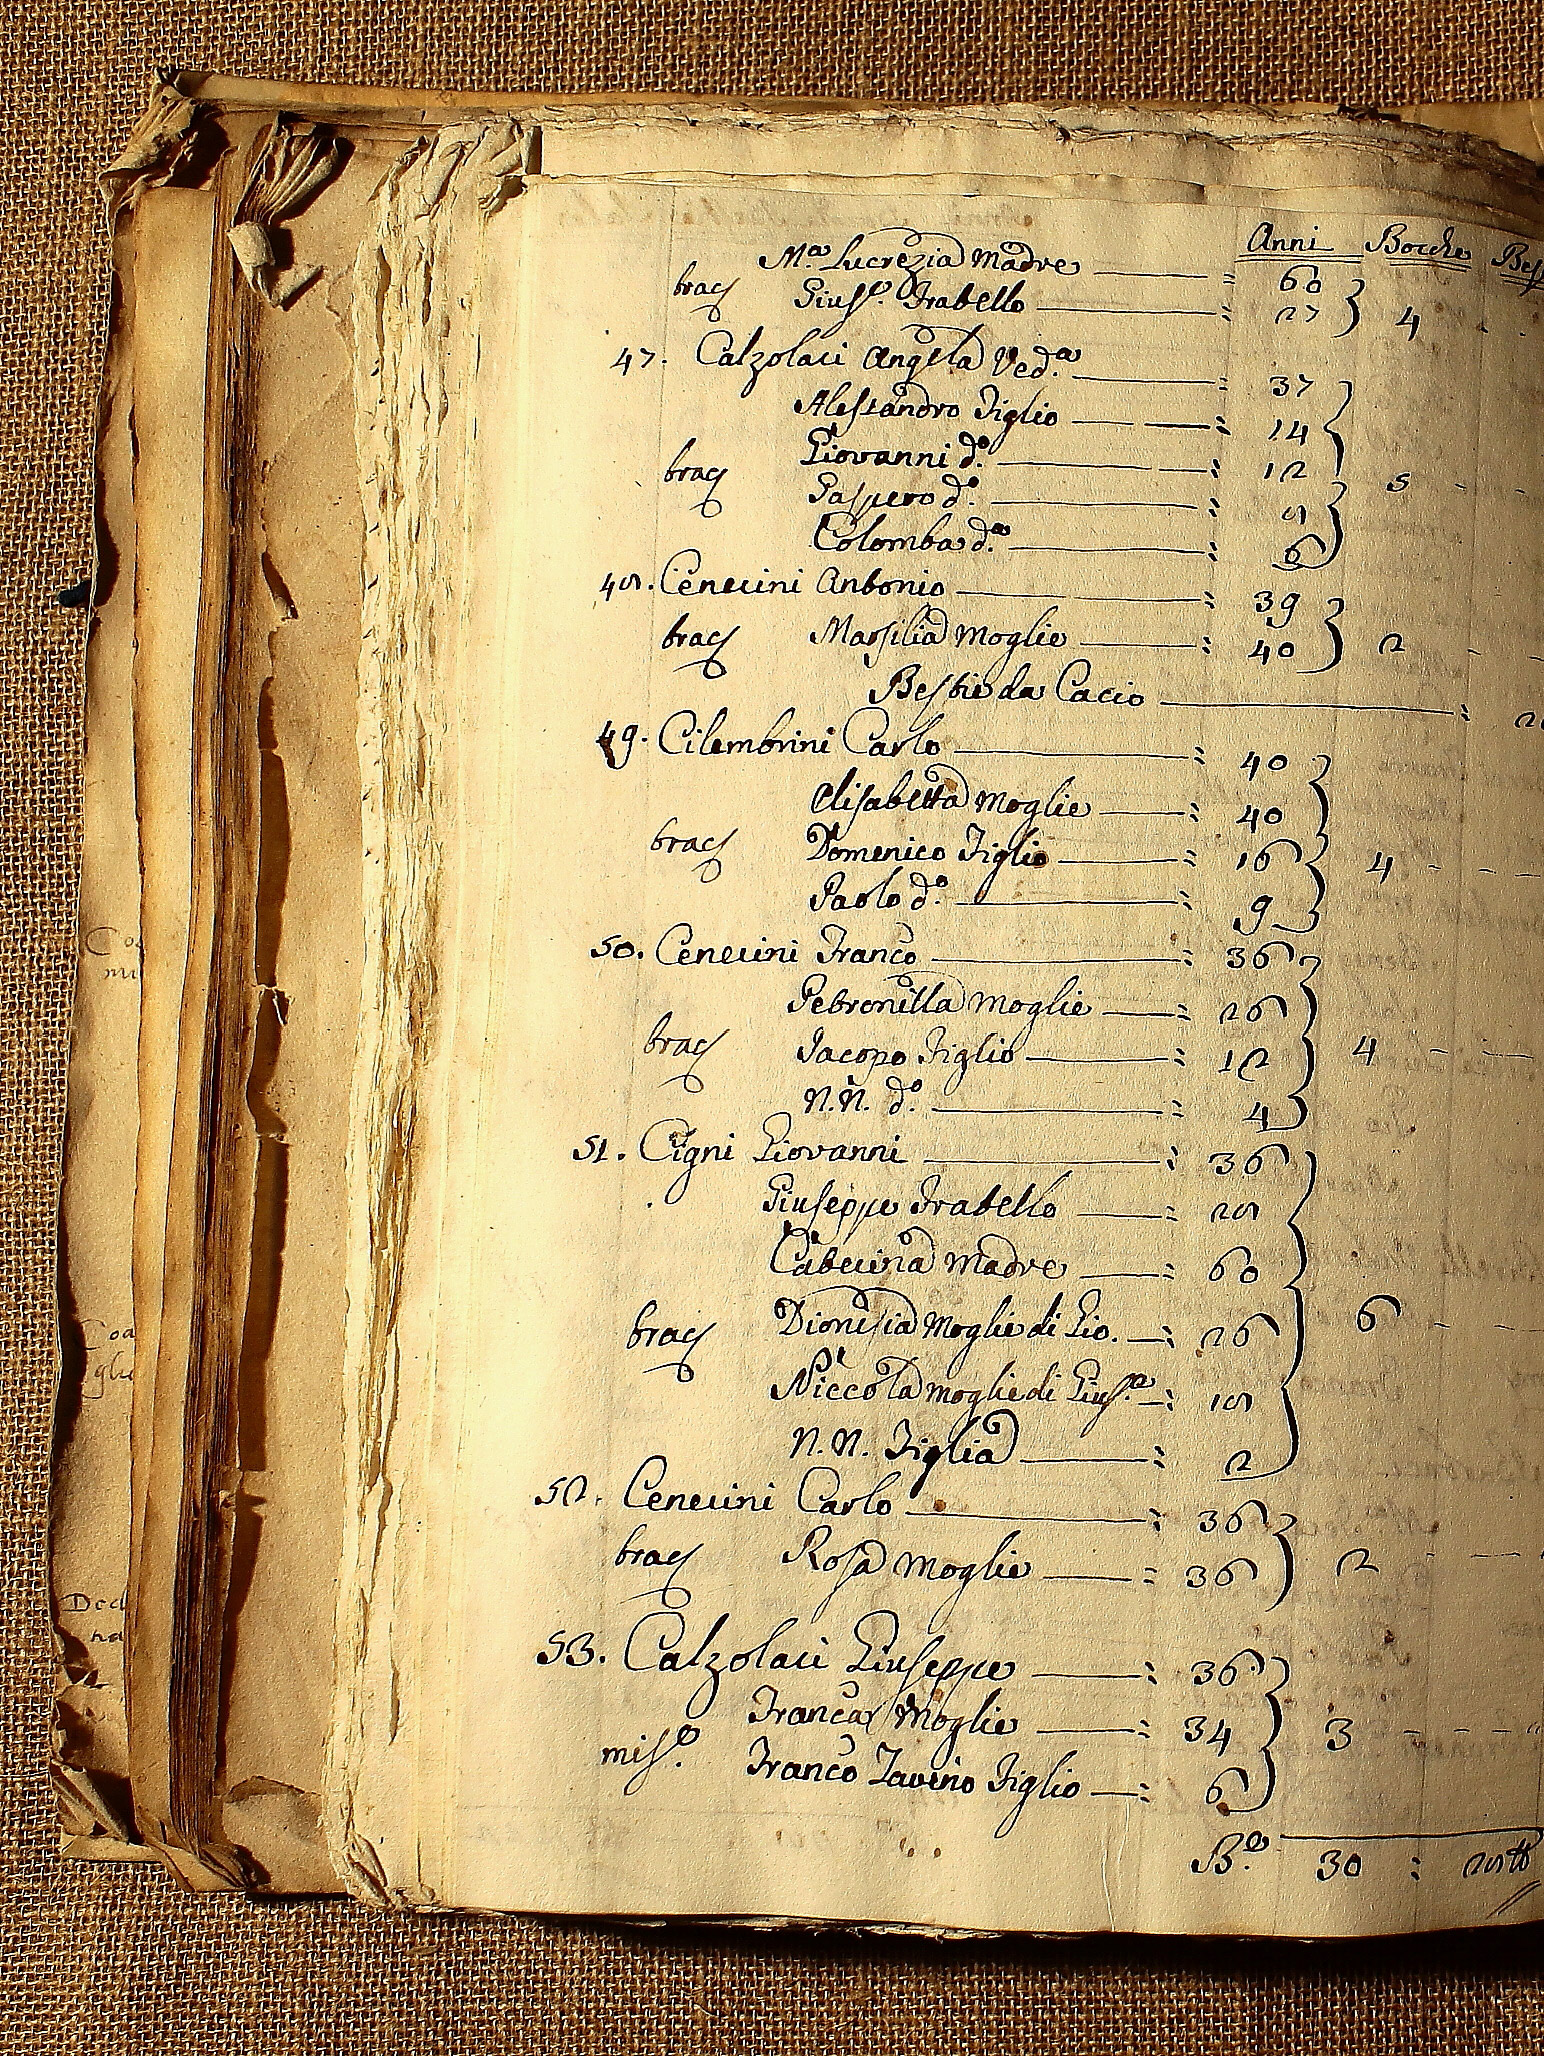 Anni Bocche Bes
M.ª Lucrezia Madre = 60
brac Gius.e Fratello = 27 4
47. Calzolari Angela Ved.ª = 37
Alessandro Figlio = 14
Giovanni d.º = 12
brac Gaspero d.º = 8 5
Colomba d.ª = 6
48. Cenerini Antonio = 39
brac Marsilia Moglie = 40 2
Bestie da Cacio =
49. Cilembrini Carlo = 40
Elisabetta Moglie = 40
brac Domenico Figlio = 16 4
Paolo d.º = 9
50. Cenerini Franco = 36
Petronilla Moglie = 26
brac Jacopo Figlio = 12 4
N.N. d.º = 4
51. Cigni Giovanni = 36
Giuseppe Fratello = 28
Caterina Madre = 60
brac Dionisia Moglie di Gio. = 26 6
Niccola Moglie di Gius.e = 18
N.N. Figlia = 2
52. Cenerini Carlo = 36
brac Rosa Moglie = 36 2
53. Calzolari Giuseppe = 36
Franca Moglie = 34 3
mis.e Franco Figlio = 6
30 :
Coa
mi
Coa
glie
Ded
na